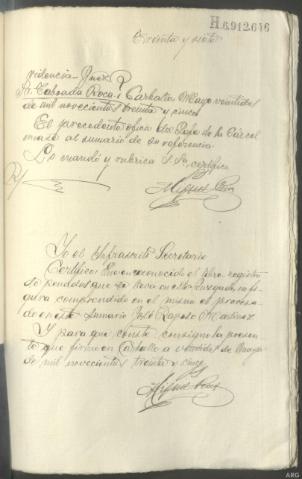 H.6.912.616
Treinta y siete
Providencia Juez
Sr. Taboada Roca. Carballo Mayo veintidos
de mil novecientos treinta y cinco
El precedente oficio del Jefe de la Cárcel
únase al sumario de su referencia.
Lo mandó y rubrica S. Sª, certifico
Yo el Infrascrito Secretario
Certifico: Que reconocido el libro registro
de penados que se lleva en este Juzgado no fi-
gura comprendido en el mismo el procesa-
do en este Sumario José Raposo Martinez
Y para que conste consigno la presen-
te que firmo en Carballo a veintidos de Mayo
de mil novecientos treinta y cinco
ARG